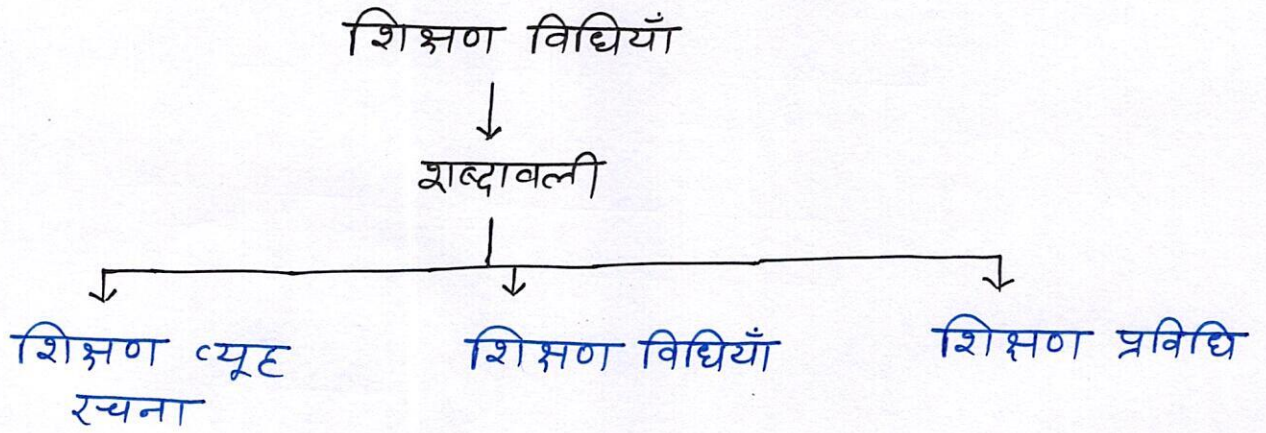 शिक्षण विधियाँ
शब्दावली
शिक्षण व्यूह
रचना
शिक्षण विधियाँ
शिक्षण प्रविधि